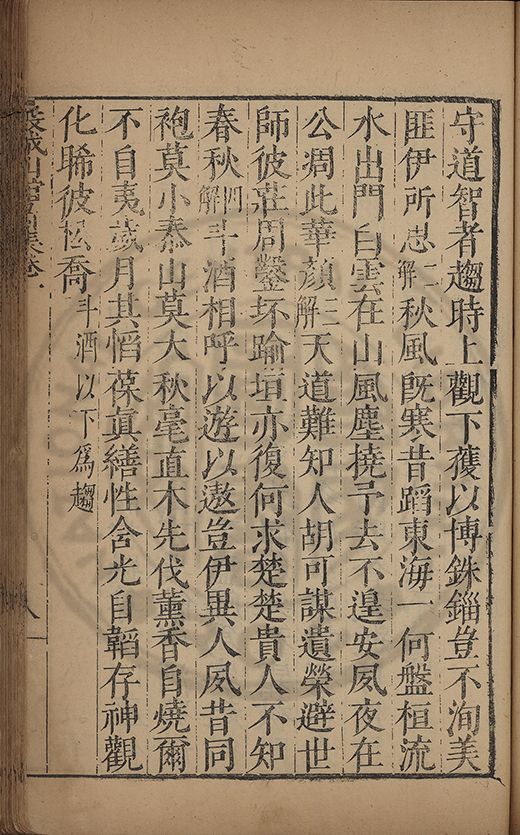 守道智者趨時上觀下獲以博銖錙豈不洵美
匪伊所思二解秋風旣寒昔蹈東海一何盤桓流
水出門白雲在山風塵撓予去不遑安夙夜在
公凋此華顏三解天道難知人胡可謀遺榮避世
師彼莊周鑿坏踰垣亦復何求楚楚貴人不知
春秋四解斗酒相呼以遊以遨豈伊異人夙昔同
袍莫小泰山莫大秋毫直木先伐薰香自燒爾
不自夷歲月其慆葆眞繕性含光自韜存神觀
化睎彼松喬斗酒以下爲趨
山房集卷一
八